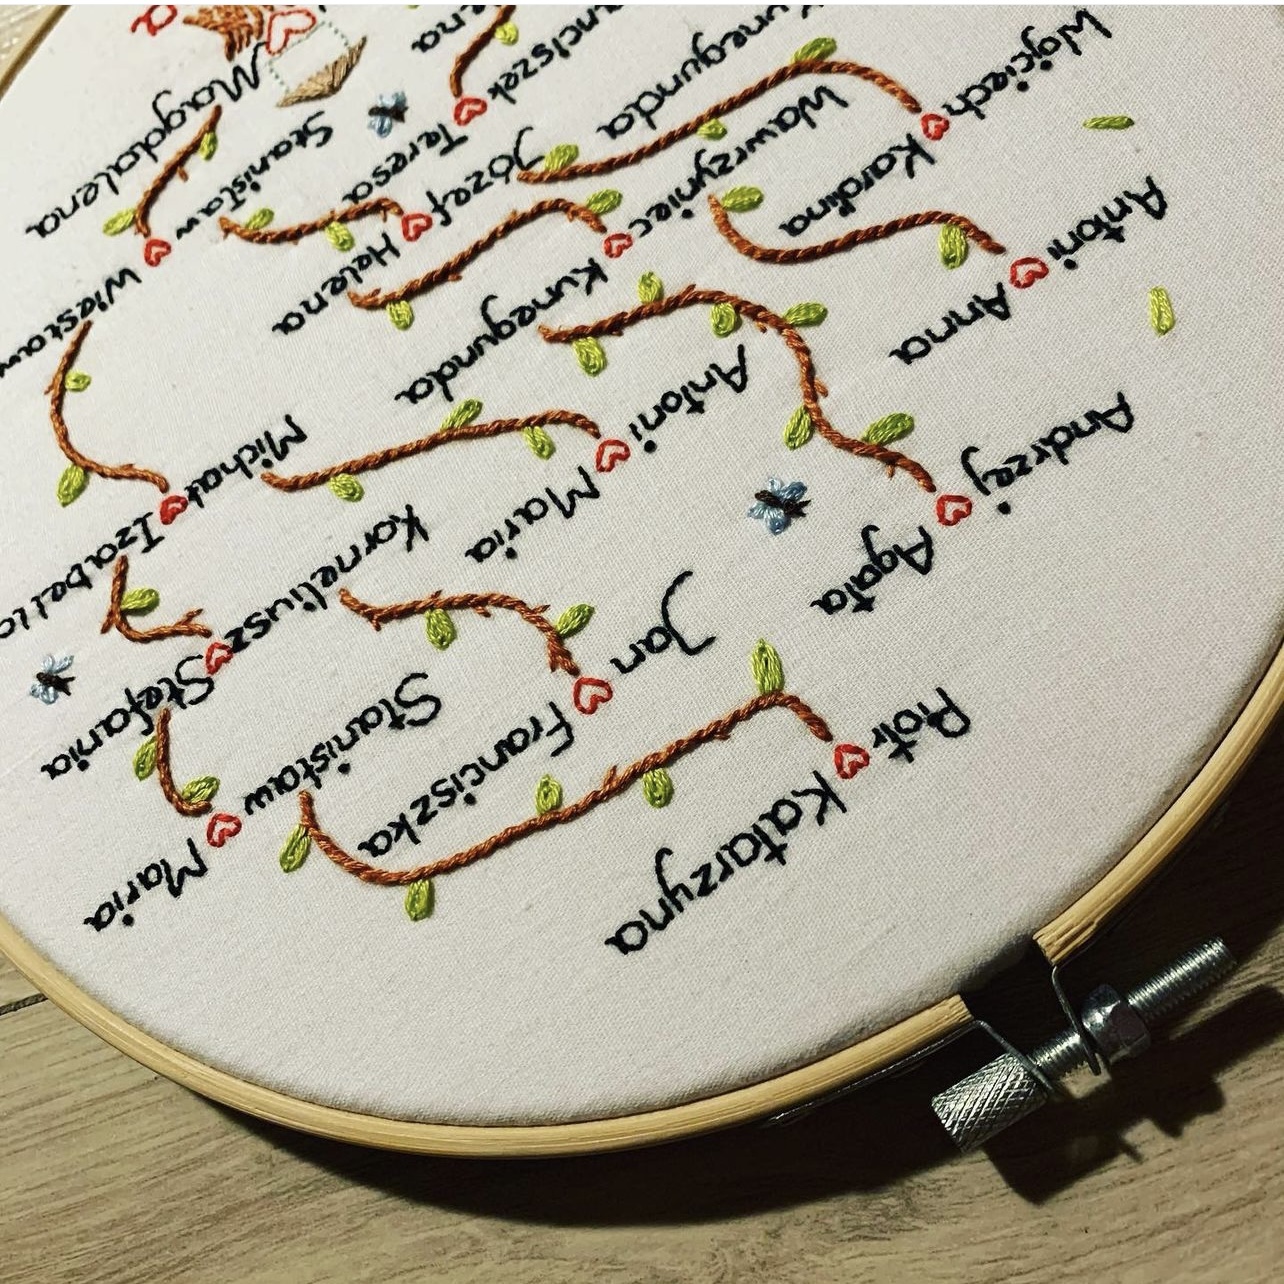 Piotr Katarzyna
Jan Franciszka
Stanisław Maria
Andrzej Agata
Antoni Maria
Korneliusz Stefania
Michał Izabella
Antoni Anna
Wawrzyniec Kunegunda
Wojciech Karolina
Józef Helena
Stanisław Wiesław
Kunegunda
nciszek Teresa
Magdalena